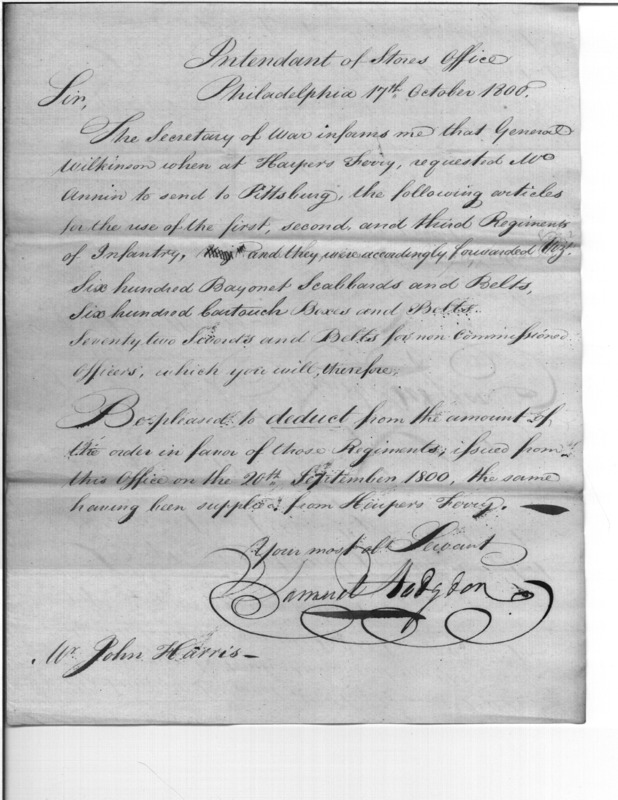 Intendant of Stores Office
Philadelphia 17th October 1800.
Sir,
The Secretary of War informs me that General
Wilkinson when at Harpers Ferry, requested Mr
Annin to send to Pittsburg, the following articles
for the use of the first, second, and third Regiments
of Infantry, and they were accordingly forwarded Viz.
Six hundred Bayonet Scabbards and Belts,
Six hundred Cartouch Boxes and Belts.
Seventy two Swords and Belts for non Commissioned
Officers, which you will, therefore,
Be pleased to deduct from the amount of
the order in favor of those Regiments, issued from
this Office on the 20th September 1800, the same
having been supplied from Harpers Ferry.
Your most obt Servant
Samuel Hodgdon
Mr. John Harris